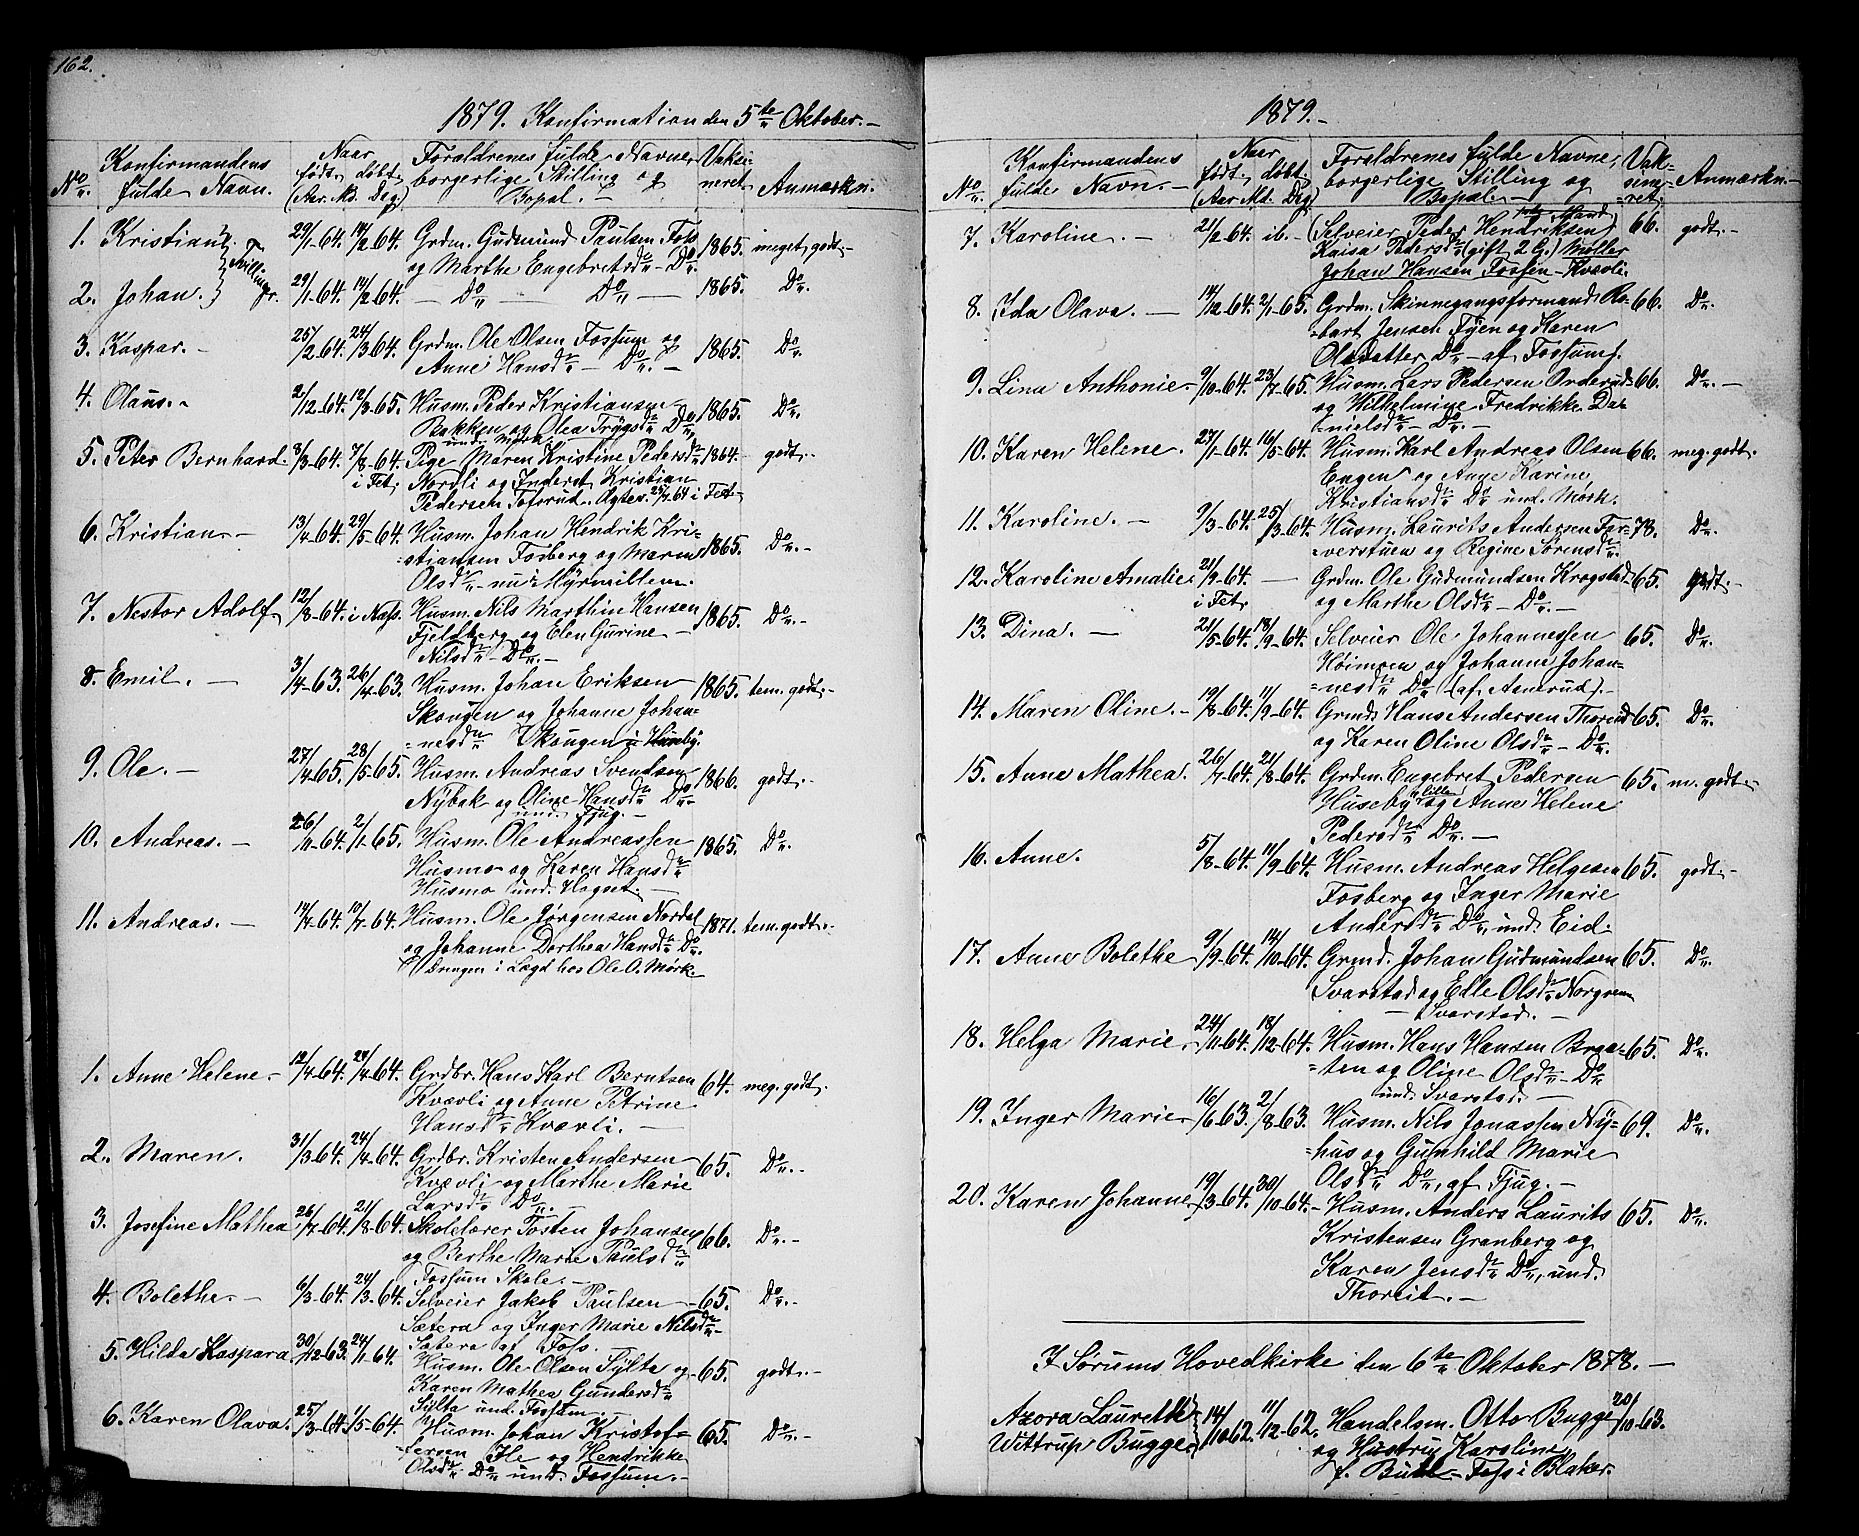 162.
1879. Konfirmation den 5te Oktober. -
No
Konfirmandens
fulde Navn.
Naar
født, døbt,
(Aar. Md. Dag)
Forældrenes fulde Navne,
borgerlige Stilling og
Bopæl. -
Vaksi-
neret
Anmærkn.
1. Kristian. } Tvillinger. 29/1-64. 14/2-64. Grdm. Gudmund Paulsen Foss 1865. meget godt. -
og Marthe Engebretsdr - Do.
2. Johan. 29/1-64. 14/2-64. - Do Do - 1865. Do.
3. Kaspar. - 25/2-64. 24/3-64. Grdm. Ole Olsen Fossum og 1865. Do
Anne Hansdr - Do. -
4. Olaus. - 2/12-64. 12/3-65. Husm. Peder Kristiansen 1865. Do.
Bakken og Olea Trygsdr Do
und. Mørk.
5. Peter Bernhard. 8/3-64. 7/8-64. Pige Maren Kristine Pedersdr 1864. godt. -
i Fet. Nordli og Inderst Kristian
Pedersen Tofsrud. Agter. 25/7-64 i Fet -
6. Kristian - 13/4-64. 29/5-64. Husm. Johan Hendrik Kri- 1865. Do. -
=stiansen Fosberg og Maren
Olsdr - nu Myrmillem.
7. Nestor Adolf 12/8-64. i Næs. Husm. Nils Marthin Hansen 1865. Do. -
Fjeldberg og Elen Gurine -
Nilsdr - Do. -
8. Emil. - 3/4-63. 26/4-63. Husm. Johan Eriksen 1865. tem. godt. -
Skougen og Johanne Johan=
=nesdr Skougen i Huseby.
9. Ole. - 27/4-65. 28/5-65. Husm. Andreas Svendsen 1866. godt. -
Nybak og Oline Hansdr Do
und. Fjug. -
10. Andreas. - 26/11-64. 2/1-65. Husm. Ole Andreassen 1865. Do.
Husmo og Karen Hansdr
Husmo und. Hogset. -
11. Andreas. - 14/4-64. 10/7-64. Husm. Ole Jørgensen Nordal 1871. tem. godt. -
og Johanne Dorthea Hansdr Do.
Drengen i Lægd hos Ole O. Mørk
1. Anne Helene. - 12/4-64. 24/4-64. Grdbr. Hans Karl Berntsen 64. meg. godt.
Kvævli og Anne Petrine
Hansdr Kvævli. -
2. Maren. 31/3-64. 24/4-64. Grdbr. Kristen Andersen 65. Do. -
Kvævli og Marthe Marie
Larsdr Do. -
3. Josefine Mathea 26/7-64. 21/8-64. Skolelærer Tosten Johansen 66. Do. -
og Berthe Marie Paulsdr
Fossum Skole. -
4. Bolethe. - 6/3-64. 24/3-64. Selveier Jakob Paulsen - 65. Do. -
Sætera og Inger Marie Nilsdr -
Sætera af Foss.
5. Hilda Kaspara. 30/12-63. 24/1-64. Husm. Ole Olsen Sylta og 65. godt. -
Karen Mathea Gundersdr
Sylta und. Fossum. -
6. Karen Olava. 25/3-64. 1/5-64. Husm. Johan Kristof= 65. Do. -
=fersen Ile og Hendrikke
Olsdr Do und. Fossum. -
1879. -
No
Konfirmandens
fulde Navn. -
Naar
født, døbt.
(Aar Md. Dag)
Forældrenes fulde Navne,
borgerlige Stilling og
Bopæl. -
Vak-
sine-
=ret.
Anmærkn. -
7. Karoline. - 21/2-64. ib. - (Selveier Peder Hendriksen) 66. godt. -
Kaisa Pedersdr (gift 2 G.) Møller
Johan Hansen Fossen - Kvævli.
8. Ida Olava. - 14/12-64. 2/1-65. Grdm. Skinnegangsformand Ro- 66. Do.
=bart Jensen Fyen og Karen
Olsdatter Do - af Fossum.
9. Lina Anthonie - 9/10-64. 23/7-65. Husm. Lars Pedersen Orderud 66. Do. -
og Wilhelmine Fredrikke Da=
=nielsdr - Do. -
10. Karen Helene. 27/1-64. 16/5-64. Husm. Karl Andreas Olsen 66. meg. godt.
Engen og Anne Karine
Kristiansdr Do und. Mørk.
11. Karoline. - 9/3-64. 25/3-64. Husm. Laurits Andersen Far= 78. Do.
=verstuen og Regine Sørensdr.
12. Karoline Amalie 21/9-64. - Grdm. Ole Gudmundsen Krogstad 65. godt. -
i Fet. og Marthe Olsdr - Do. -
13. Dina. - 21/5-64. 18/9-64. Selveier Ole Johannessen 65. Do.
Høimoen og Johanne Johan=
=nesdr Do (af Asmrud). -
14. Maren Oline. - 19/8-64. 11/9-64. Grmd. Hans Andersen Thorrud 65. Do.
og Karen Oline Olsdr - Do.
15. Anne Mathea. 26/7-64. 21/8-64. Grdm. Engebret Pedersen 65. m. godt. -
Huseby lille og Anne Helene
Pedersdr Do. -
16. Anne. 5/8-64. 11/9-64. Husm. Andreas Helgesen 65. godt. -
Fosberg og Inger Marie
Andersdr Do. und. Eid.
17. Anne Bolethe 9/9-64. 14/10-64. Grmd. Johan Gudmundsen 65. Do.
Svarstad og Edle Olsdr Norgren
- Svarstad. -
18. Helga Marie. 24/11-64. 18/12-64. Husm. Hans Hansen Braa= 65. Do.
=ten og Oline Olsdr - Do
und. Svarstad. -
19. Inger Marie 16/6-63. 2/8-63. Husm. Nils Jonassen Ny= 69. Do.
=hus og Gunhild Marie
Olsdr Do, af Fjug. -
20. Karen Johanne 19/3-64. 30/10-64. - Husm. Anders Laurits 65. Do.
Kristensen Granberg og
Karen Jensdr Do, und.
Thoreit. -
I Sørums Hovedkirke den 6te Oktober 1878. -
Azora Laurette 14/10-62. 11/12-62. Handelsm. Otto Bugge 20/10-63.
Wittrup Bugge og Hustru Karoline
f. Bull - Foss i Blaker.